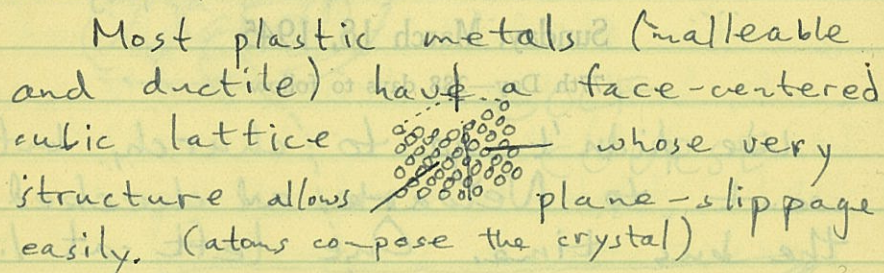 Most plastic metals (malleable
and ductile) have a face-centered
cubic lattice whose very
structure allows plane-slippage
easily. (atoms compose the crystal)